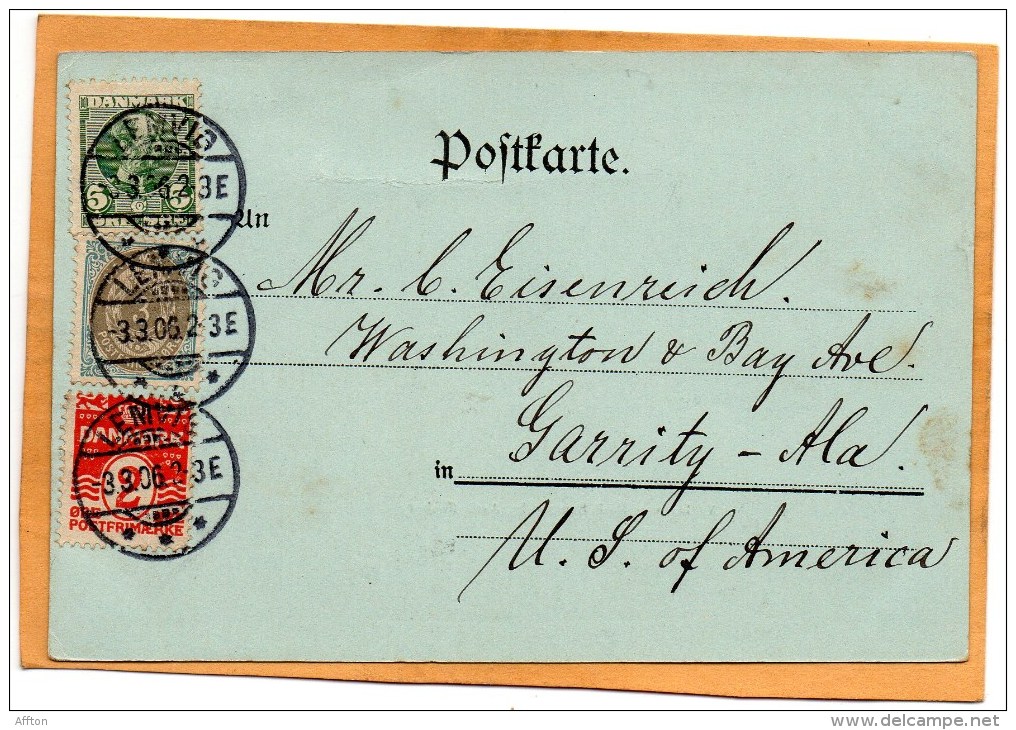 Postkarte.
DANMARK
5 5
LEMVIG
-3.3.06.2-3E
An
Mr. C. Eisenreich.
LEMVIG
3
-3.3.06.2-3E
Washington & Bay Ave.
LEMVIG
DANMARK
in Garrity - Ala.
-3.3.06.2-3E
2
ØRE
POSTFRIMÆRKE
U. S. of America
Affton
www.delcampe.net